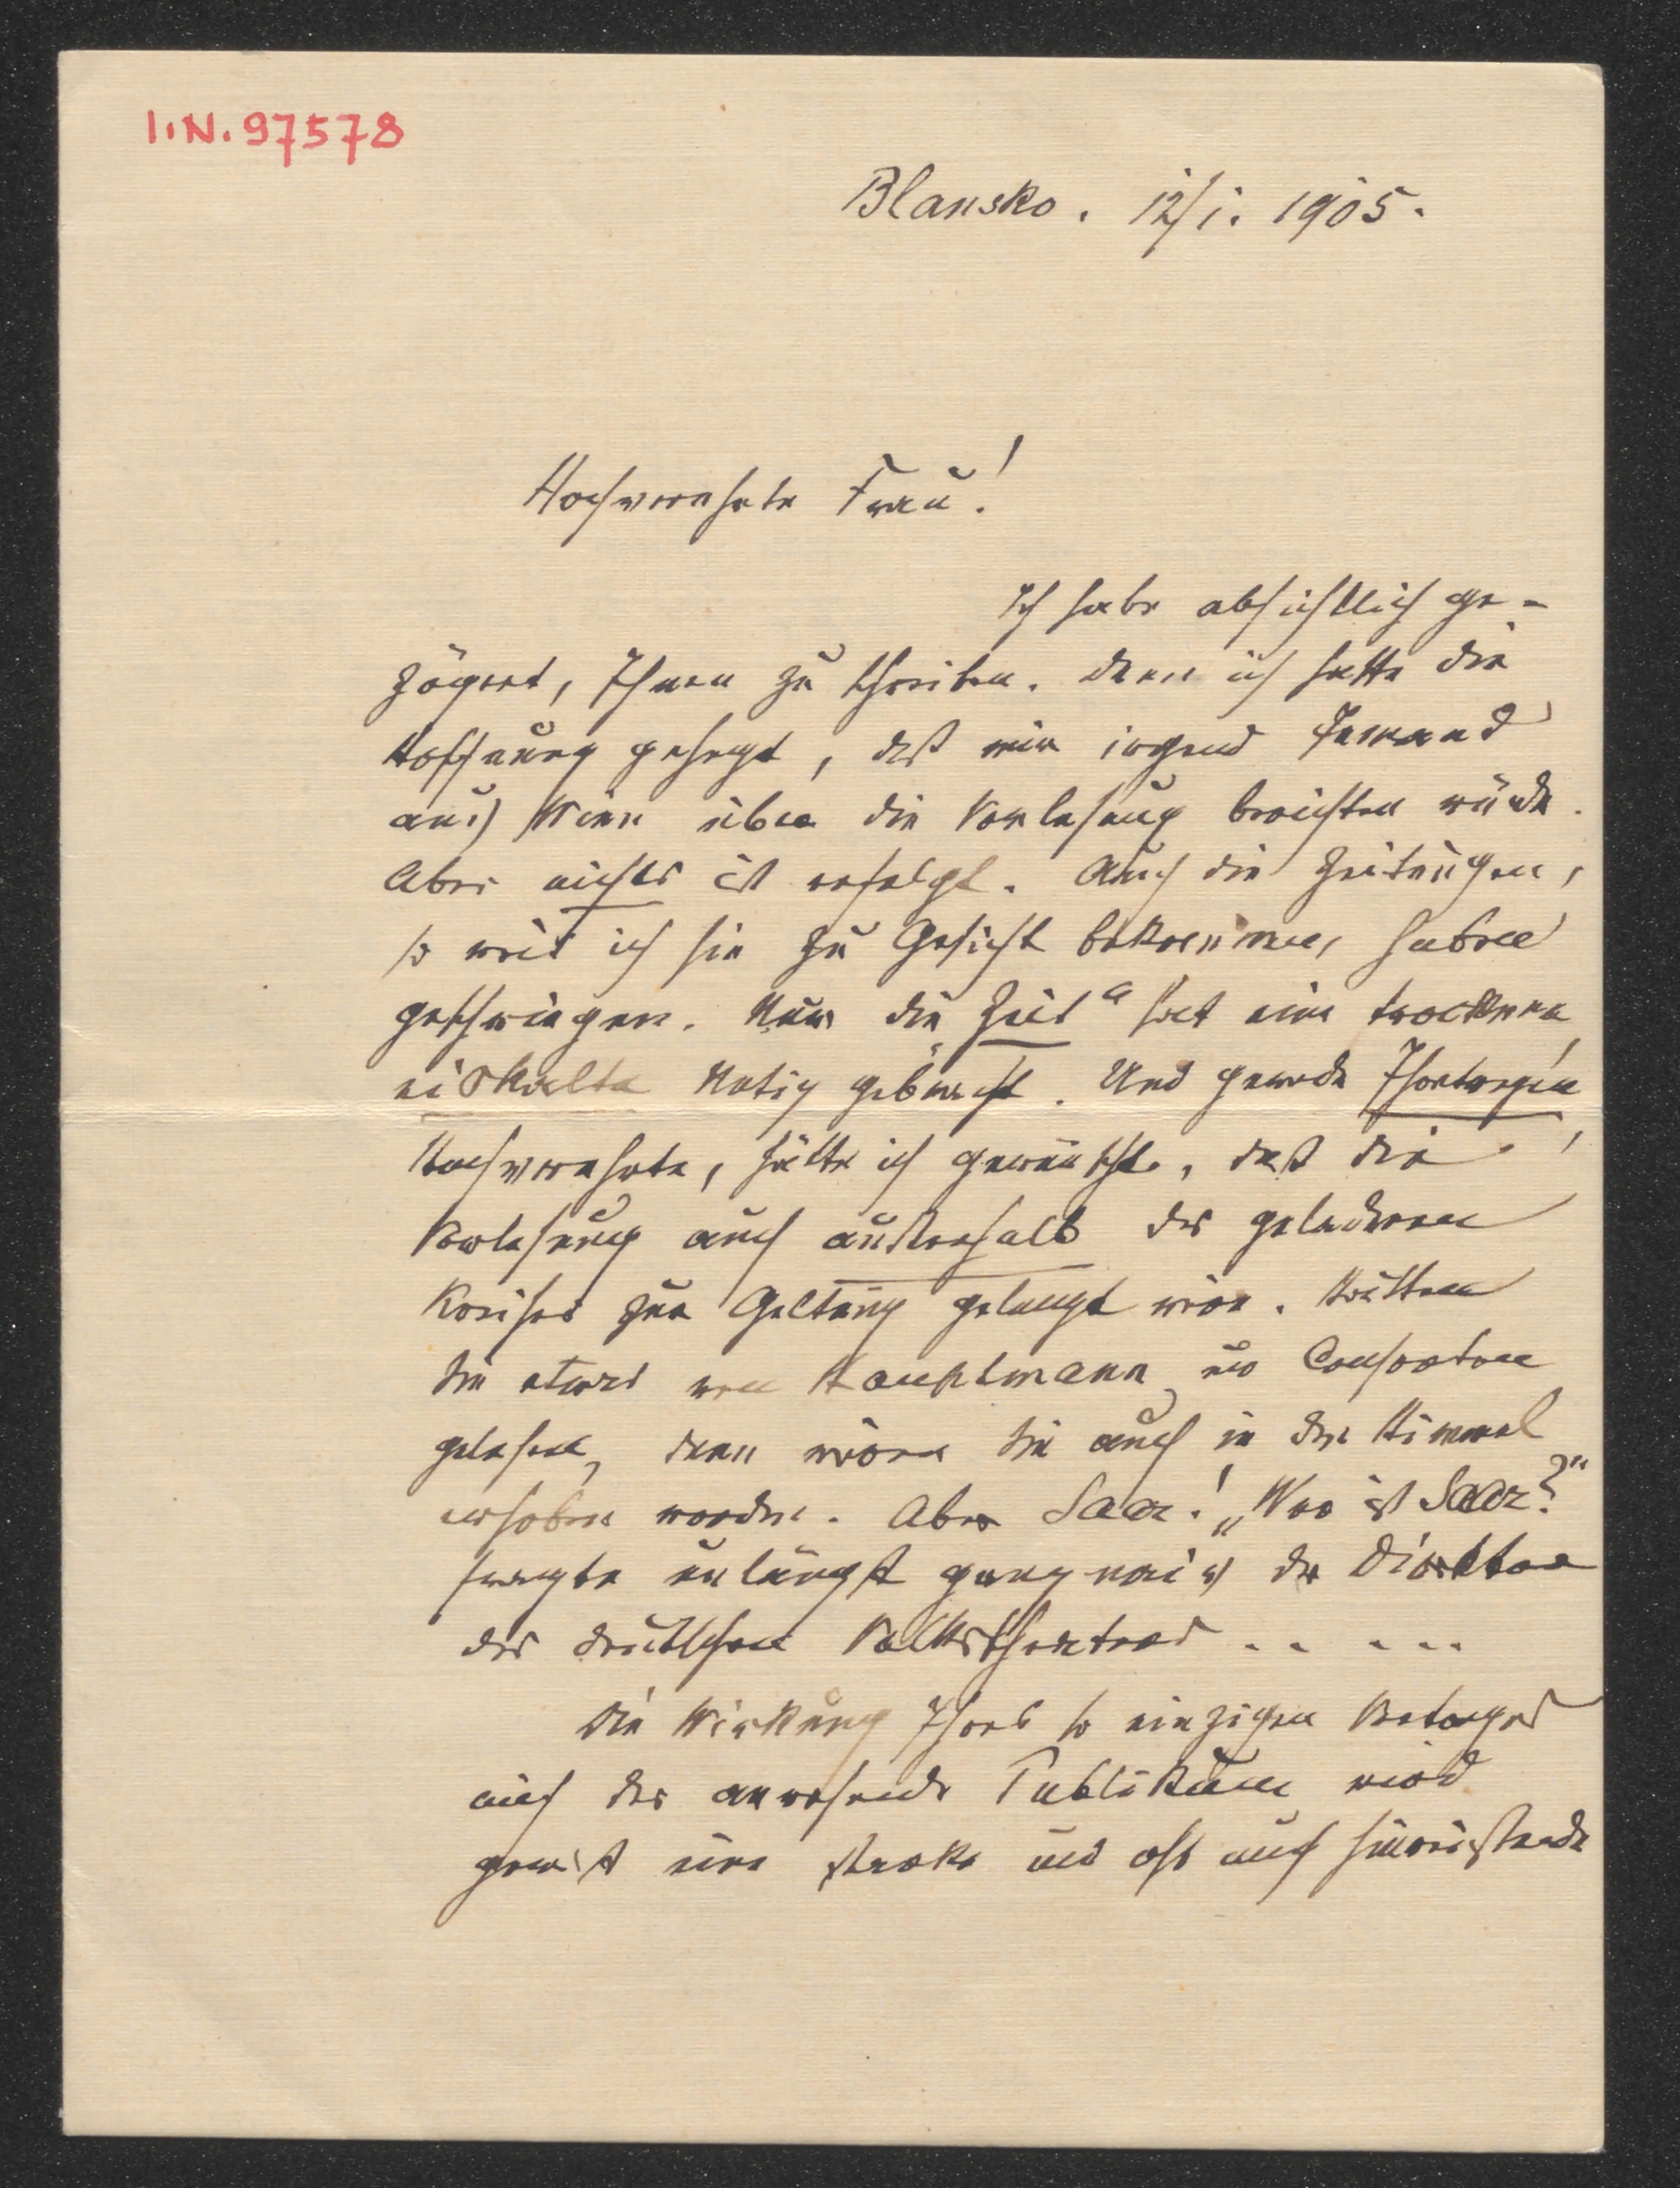 I.N. 97578
Blansko. 12/1. 1905.
Hochverehrte Frau!
Ich habe absichtlich ge-
zögert, Ihnen zu schreiben. Denn ich hatte die
Hoffnung gehegt, daß mir irgend Jemand
aus Wien über die Vorlesung berichten würde.
Aber nichts ist erfolgt. Auch die Zeitungen,
so weit ich sie zu Gesicht bekomme, haben
geschwiegen. Nur die „Zeit“ hat eine trockene,
eiskalte Notiz gebracht. Und gerade Ihretwegen,
Hochverehrte, hätte ich gewünscht, daß die
Vorlesung auch außerhalb des geladenen
Kreises zur Geltung gelangt wäre. Hätten
Sie etwas von Hauptmann und Consorten
gelesen, dann wären Sie auch in den Himmel
erhoben worden. Aber Saar! „Wer ist Saar?“
fragte unlängst ganz naiv der Direktor
des deutschen Volkstheaters . . . . .
Die Wirkung Ihres so einzigen Vortrages
auf das anwesende Publikum wird
gewiß eine starke und oft auch hinreißende